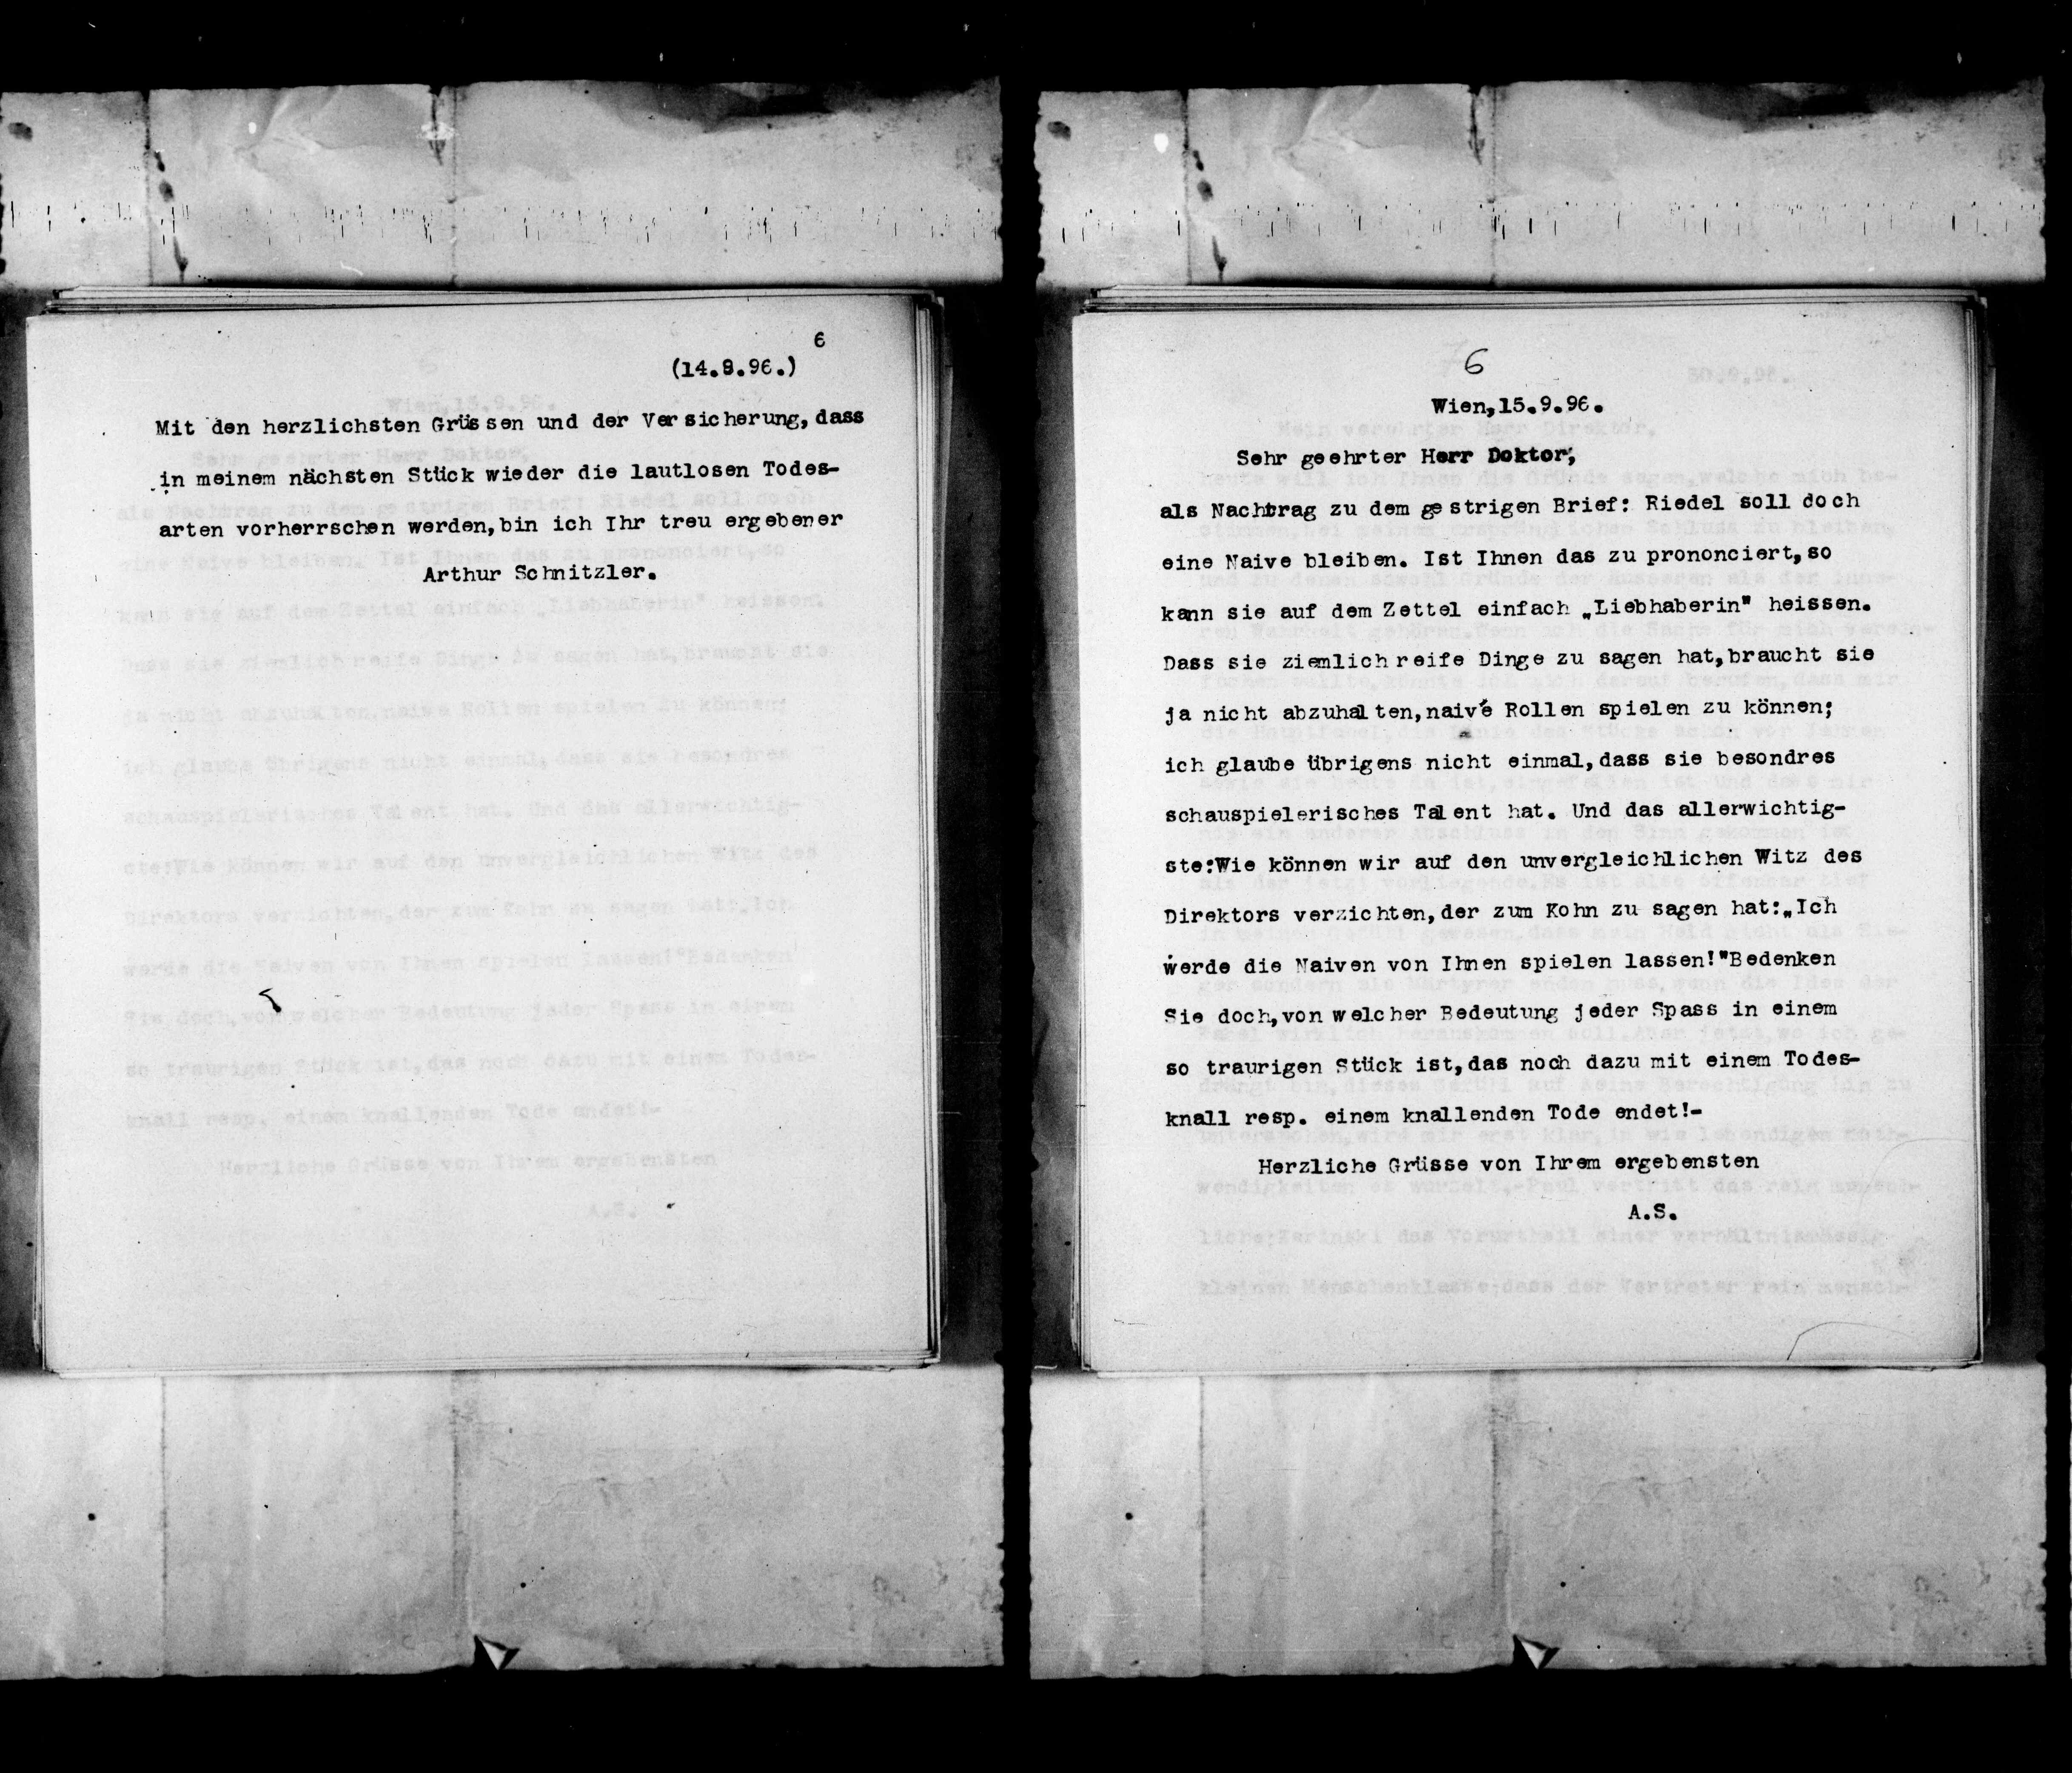 6
(14.9.96.)
Mit den herzlichsten Grüssen und der Versicherung, dass
in meinem nächsten Stück wieder die lautlosen Todes-
arten vorherrschen werden, bin ich Ihr treu ergebener
Arthur Schnitzler.
6
Wien,15.9.96.
Sehr geehrter Herr Doktor,
als Nachtrag zu dem gestrigen Brief: Riedel soll doch
eine Naive bleiben. Ist Ihnen das zu prononciert, so
kann sie auf dem Zettel einfach „Liebhaberin" heissen.
Dass sie ziemlich reife Dinge zu sagen hat, braucht sie
ja nicht abzuhalten, naive Rollen spielen zu können;
ich glaube übrigens nicht einmal, dass sie besondres
schauspielerisches Talent hat. Und das allerwichtig-
ste:Wie können wir auf den unvergleichlichen Witz des
Direktors verzichten, der zum Kohn zu sagen hat:„Ich
werde die Naiven von Ihnen spielen lassen!"Bedenken
Sie doch, von welcher Bedeutung jeder Spass in einem
so traurigen Stück ist, das noch dazu mit einem Todes-
knall resp. einem knallenden Tode endet!-
Herzliche Grüsse von Ihrem ergebensten
A.S.